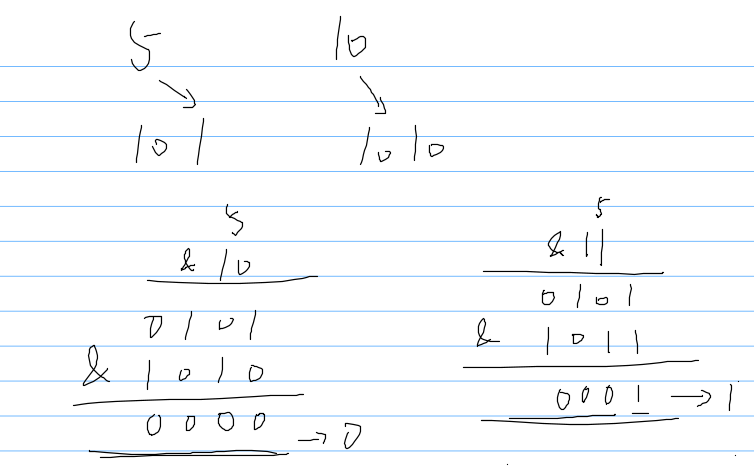 5 10
101 1010
5
& 10
0101
& 1010
0000 → 0
5
& 11
0101
& 1011
0001 → 1